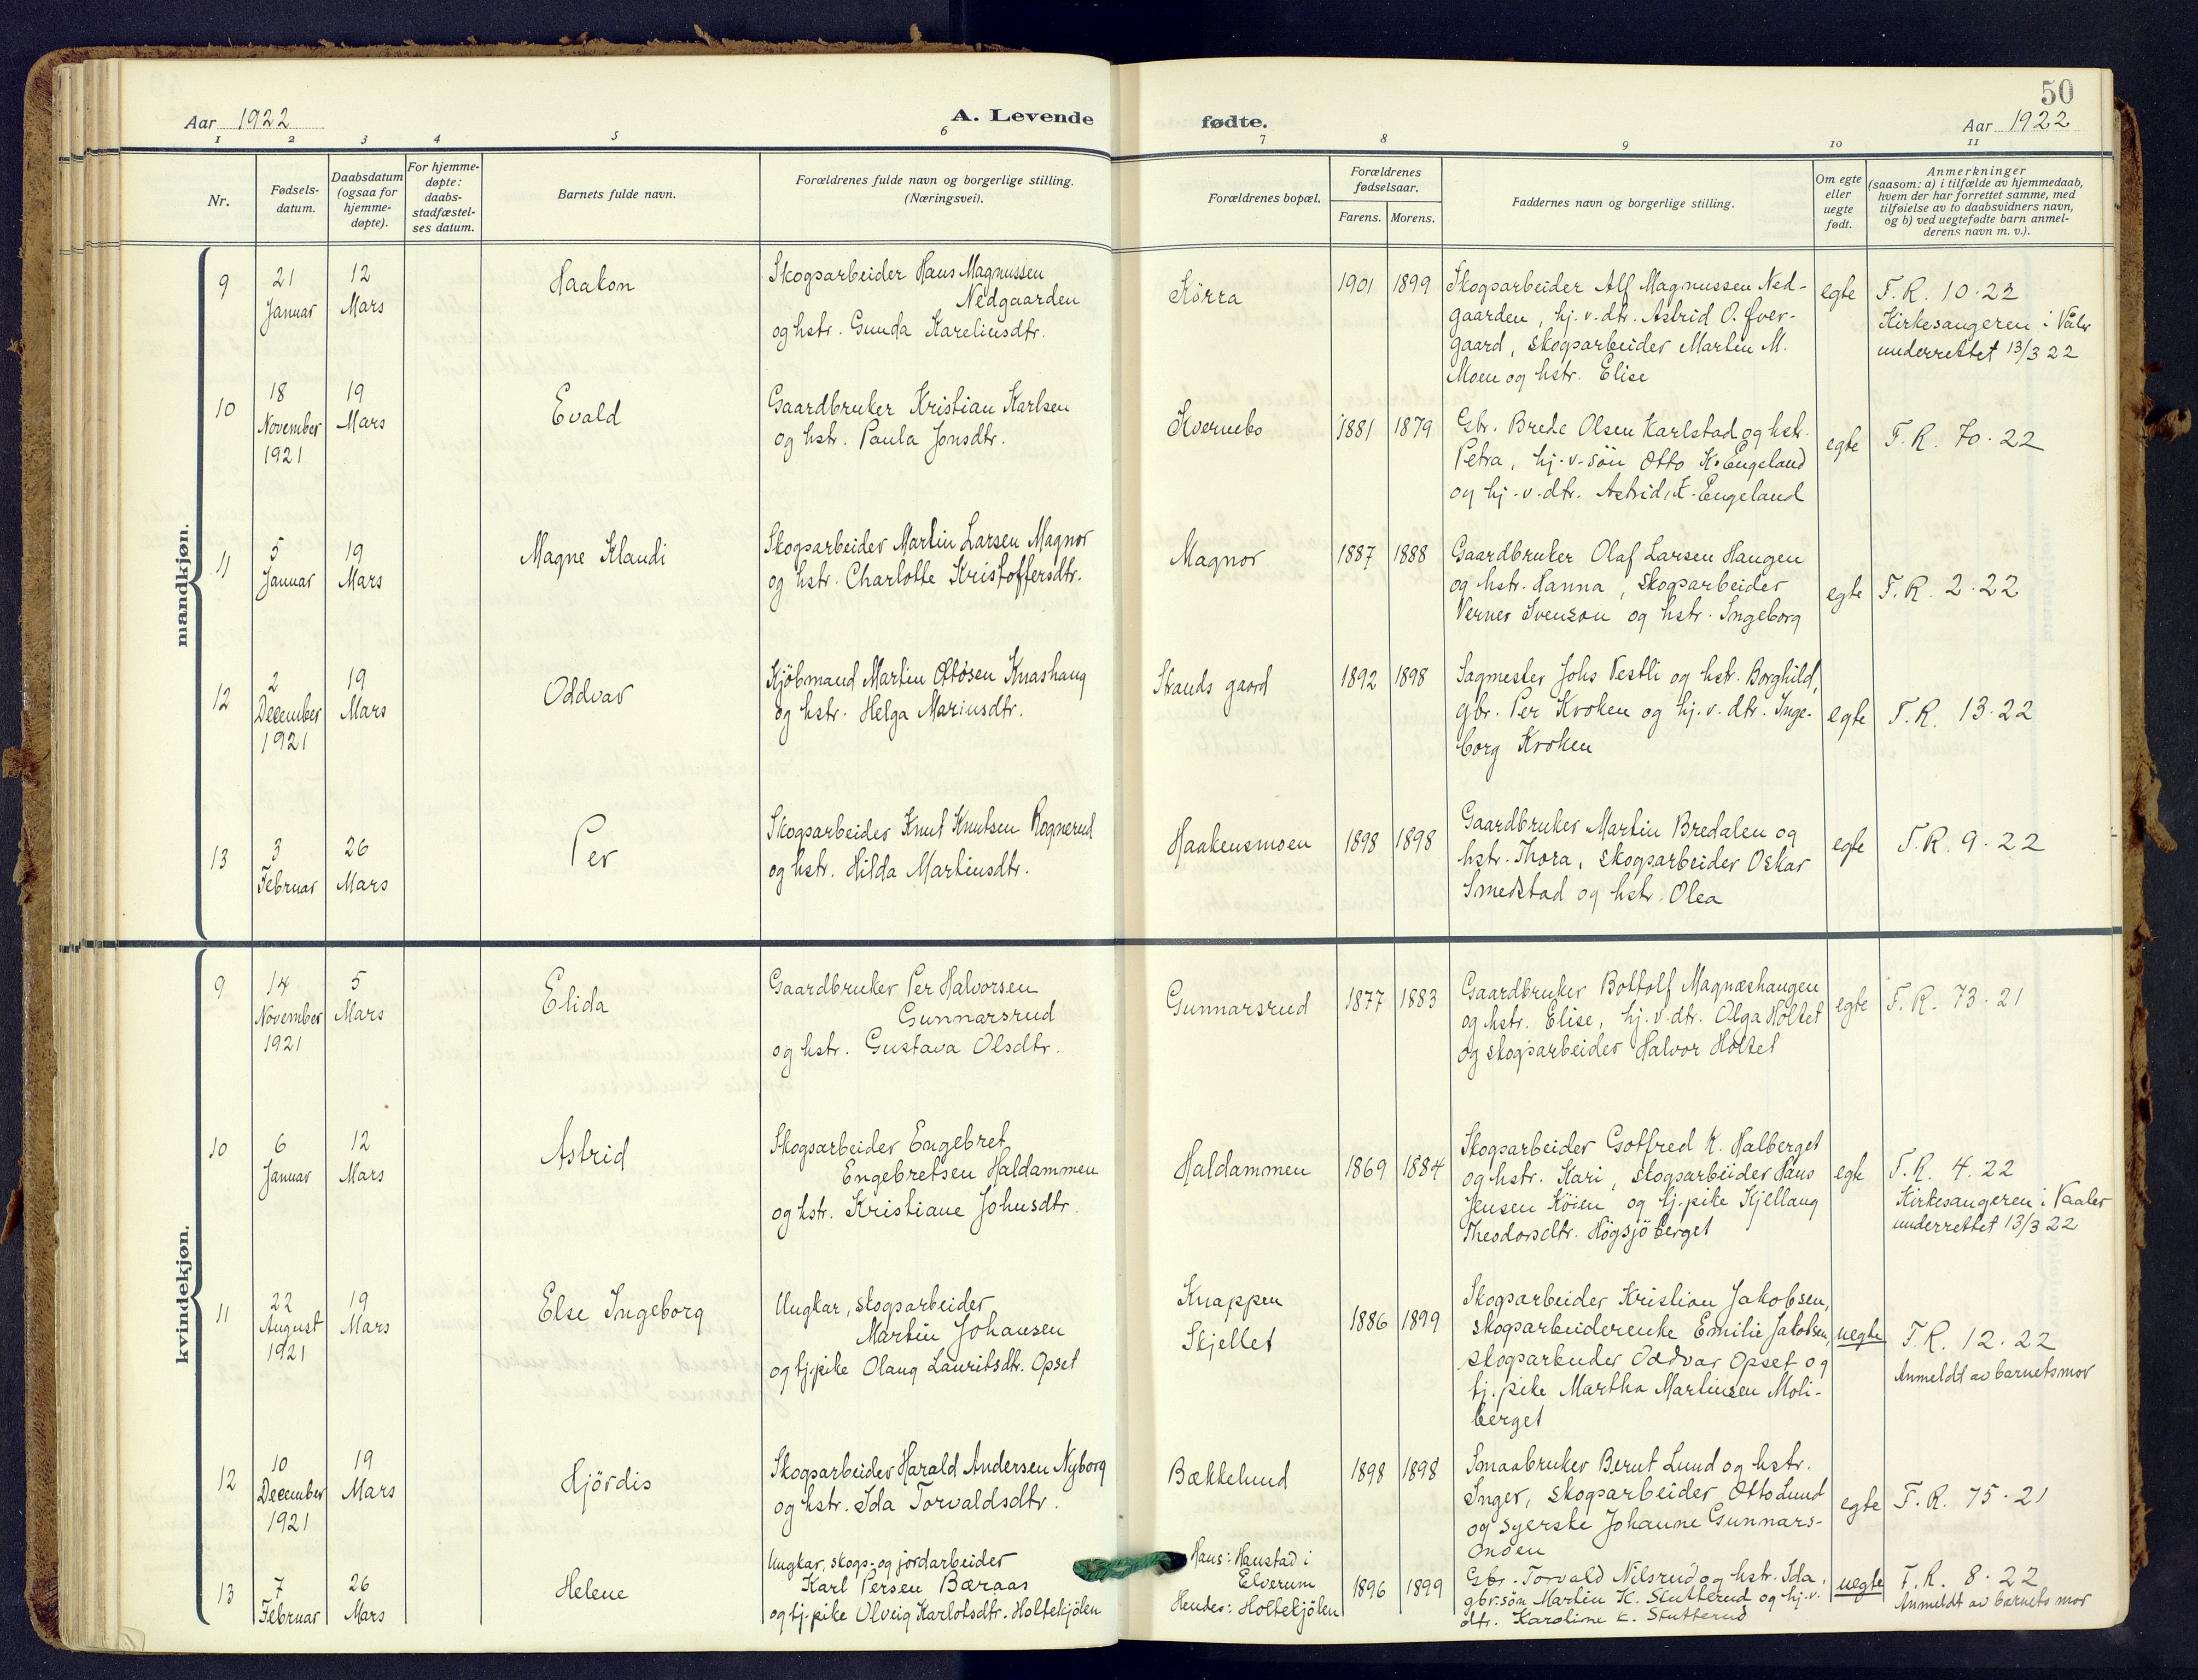 50
Aar 1922
A. Levende
fødte.
Aar 1922
1 2 3 4 5 6 7 8 9 10 11
Nr.
Fødsels-
datum.
Daabsdatum
(ogsaa for
hjemme-
døpte).
For hjemme-
døpte:
daabs-
stadfæstel-
ses datum.
Barnets fulde navn.
Forældrenes fulde navn og borgerlige stilling.
(Næringsvei).
Forældrenes bopæl.
Forældrenes
fødselsaar.
Farens. Morens.
Faddernes navn og borgerlige stilling.
Om egte
eller
uegte
født.
Anmerkninger
(saasom: a) i tilfælde av hjemmedaab,
hvem der har forrettet samme, med
tilføielse av to daabsvidners navn,
og b) ved uegtefødte barn anmel-
derens navn m. v.).
mandkjøn.
9
21
Januar
12
Mars
Haakon
Skogsarbeider Hans Magnussen
Nedgaarden
og hstr. Gunda Kareliusdtr.
Körra
1901
1899
Skogsarbeider Alf Magnussen Ned-
gaarden, hj. v. dtr. Astrid O. Øver-
gaard, skogsarbeider Martin M.
Moen og hstr. Elise
egte
F. R. 10. 22
Kirkesangeren i Våler
underrettet 13/3 22
10
18
November
1921
19
Mars
Evald
Gaardbruker Kristian Karlsen
og hstr. Paula Jonsdtr.
Kvernebo
1881
1879
Gbr. Brede Olsen Karlstad og hstr.
Petra, hj. v. sön Otto K. Engeland
og hj. v. dtr. Astrid K. Engeland
egte
F. R. 70. 22
11
5
Januar
19
Mars
Magne Klaudi
Skogsarbeider Martin Larsen Magnor
og hstr. Charlotte Kristoffersdtr.
Magnor
1887
1888
Gaardbruker Olaf Larsen Haugen
og hstr. Hanna, skogsarbeider
Verner Svenson og hstr. Ingeborg
egte
F. R. 2. 22
12
2
December
1921
19
Mars
Oddvar
Kjöbmand Martin Ottosen Knashaug
og hstr. Helga Mariusdtr.
Strands gaard
1892
1898
Sagmester Johs Vestli og hstr. Borghild,
gbr. Per Kroken og hj. v. dtr. Inge-
borg Kroken
egte
F. R. 13. 22
13
3
Februar
26
Mars
Per
Skogsarbeider Knut Knutsen Rognerud
og hstr. Hilda Martinsdtr.
Haakensmoen
1898
1898
Gaardbruker Martin Bredalen og
hstr. Thora, skogsarbeider Oskar
Smedstad og hstr. Olea
egte
F. R. 9. 22
kvindekjøn.
9
14
November
1921
5
Mars
Elida
Gaardbruker Per Halvorsen
Gunnarsrud
og hstr. Gustava Olsdtr.
Gunnarsrud
1877
1883
Gaardbruker Bottolf Magnæshaugen
og hstr. Elise, hj. v. dtr. Olga Holtet
og skogsarbeider Halvor Holtet
egte
F. R. 73. 21
10
6
Januar
12
Mars
Astrid
Skogsarbeider Engebret
Engebretsen Haldammen
og hstr. Kristiane Johnsdtr.
Haldammen
1869
1884
Skogsarbeider Gotfred K. Halberget
og hstr. Kari, skogsarbeider Hans
Jensen Köien og tj. pike Kjellaug
Theodorsdtr. Högsjöberget
egte
F. R. 4. 22
Kirkesangeren i Vaaler
underrettet 13/3 22
11
22
August
1921
19
Mars
Else Ingeborg
Ungkar, skogsarbeider
Martin Johansen
og tj. pike Olaug Lauritsdtr. Opset
Knappen
Skjellet
1886
1899
Skogsarbeider Kristian Jakobsen,
skogsarbeiderenke Emilie Jakobsen,
skogsarbeider Oddvar Opset og
tj. pike Martha Martinsen Moli-
berget
uegte
F. R. 12. 22
Anmeldt av barnets mor
12
10
December
1921
19
Mars
Hjördis
Skogsarbeider Harald Andersen Nyborg
og hstr. Ida Torvaldsdtr.
Bækkelund
1898
1898
Smaabruker Bernt Lund og hstr.
Inger, skogsarbeider Otto Lund
og syerske Johanne Gunnars-
moen
egte
F. R. 75. 21
13
7
Februar
26
Mars
Helene
Ungkar, skogs- og jordarbeider
Karl Persen Bæraas
og tj. pike Olveig Karlotsdtr. Holtekjölen
Hans: Hanstad i
Elverum
Hendes: Holtekjölen
1896
1899
Gbr. Torvald Nilsrud og hstr. Ida,
gbr. sön Martin K. Skutterud og hj. v.
dtr. Karoline K. Skutterud
uegte
F. R. 8. 22
Anmeldt av barnets mor